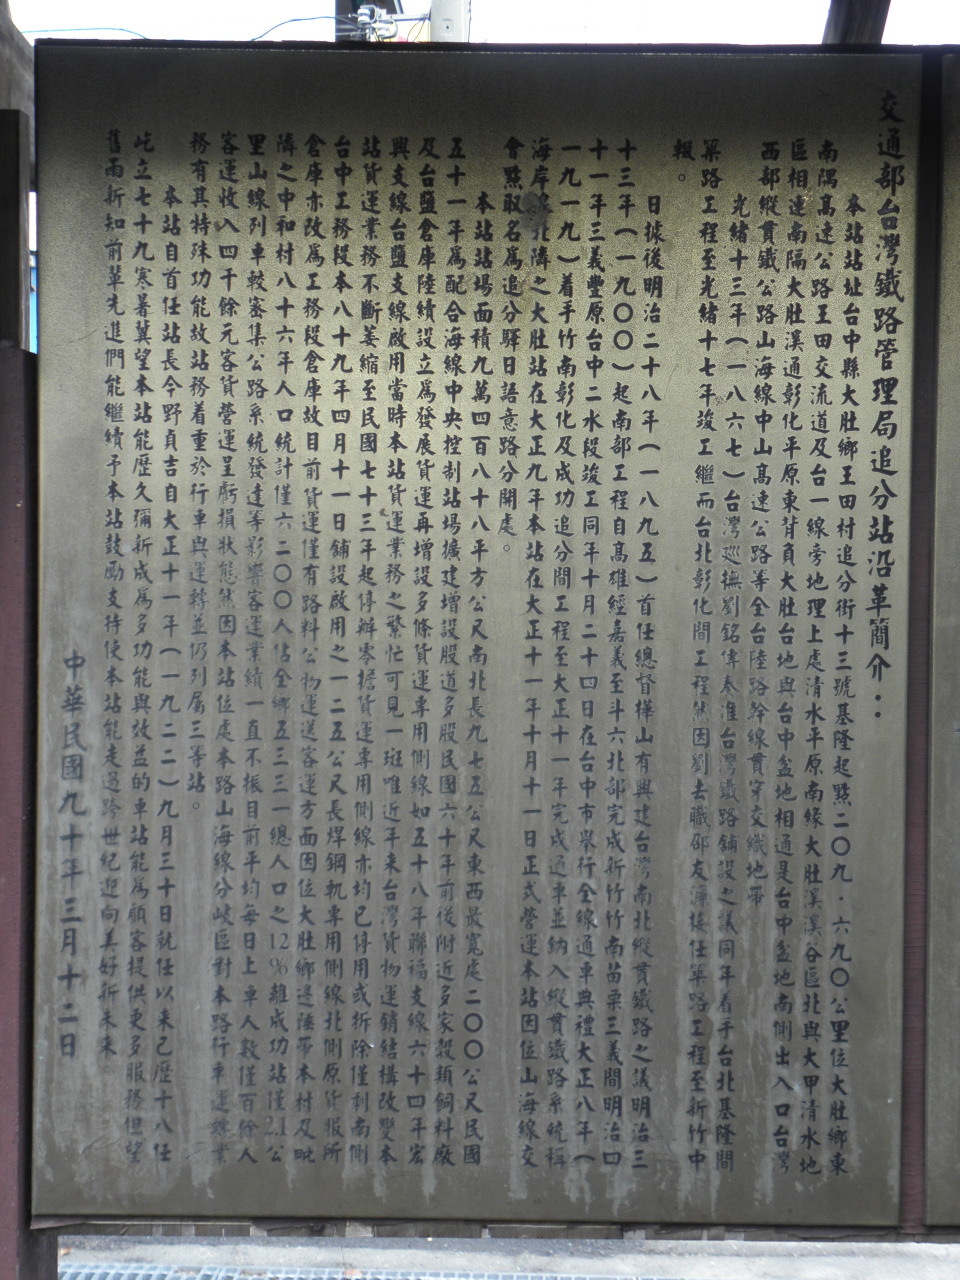 交通部台灣鐵路管理局追分站沿革簡介：
本站站址台中縣大肚鄉王田村追分街十三號基隆起點二〇九·六九〇公里位大肚鄉東
南隅高速公路王田交流道及台一線旁地理上處清水平原南緣大肚溪溪谷區北與大甲清水地
區相連南隔大肚溪通彰化平原東背負大肚台地與台中盆地相通是台中盆地南側出入口台灣
西部縱貫鐵公路山海線中山高速公路等全台陸路幹線貫穿交織地帶
光緒十三年(一八六七)台灣巡撫劉銘傳奉准台灣鐵路舖設之議同年着手台北基隆間
築路工程至光緒十七年竣工繼而台北彰化間工程然因劉去職邵友濂接任築路工程至新竹中
輟。
日據後明治二十八年(一八九五)首任總督樺山有興建台灣南北縱貫鐵路之議明治三
十三年(一九〇〇)起南部工程自高雄經嘉義至斗六北部完成新竹竹南苗栗三義間明治四
十一年三義豐原台中二水段竣工同年十月二十四日在台中市舉行全線通車典禮大正八年(
一九一九)着手竹南彰化及成功追分間工程至大正十一年完成通車並納入縱貫鐵路系統稱
海岸線北隣之大肚站在大正九年本站在大正十一年十月十一日正式營運本站因位山海線交
會點取名為追分驛日語意路分開處。
本站站場面積九萬四百八十八平方公尺南北長九七五公尺東西最寬處二〇〇公尺民國
五十一年為配合海線中央控制站場擴建增設股道多股民國六十年前後附近多家穀類飼料廠
及台鹽倉庫陸續設立為發展貨運再增設多條貨運專用側線如五十八年聯福支線六十四年宏
興支線台鹽支線啟用當時本站貨運業務之繁忙可見一斑唯近年來台灣貨物運銷結構改變本
站貨運業務不斷萎縮至民國七十三年起停辦零擔貨運專用側線亦均已停用或拆除僅剩南側
台中工務段本八十九年四月十一日舖設啟用之一二五公尺長焊鋼軌專用側線北側原貨服所
倉庫亦改為工務段倉庫故目前貨運僅有路料公物運送客運方面因位大肚鄉邊陲帶本村及毗
隣之中和村八十六年人口統計僅六二〇〇人佔全鄉五三三一總人口之12%離成功站僅2.1公
里山線列車較密集公路系統發達等影響客運業績一直不振目前平均每日上車人數僅百餘人
客運收入四千餘元客貨營運呈虧損狀態然因本站位處本路山海線分岐區對本路行車運轉業
務有其特殊功能故站務着重於行車與運轉並仍列屬三等站。
本站自首任站長今野貞吉自大正十一年(一九二二)九月三十日就任以來已歷十八任
屹立七十九寒暑冀望本站能歷久彌新成為多功能與效益的車站能為顧客提供更多服務但望
舊雨新知前輩先進們能繼續予本站鼓勵支持使本站能走過跨世紀迎向美好新未來
中華民國九十年三月十二日